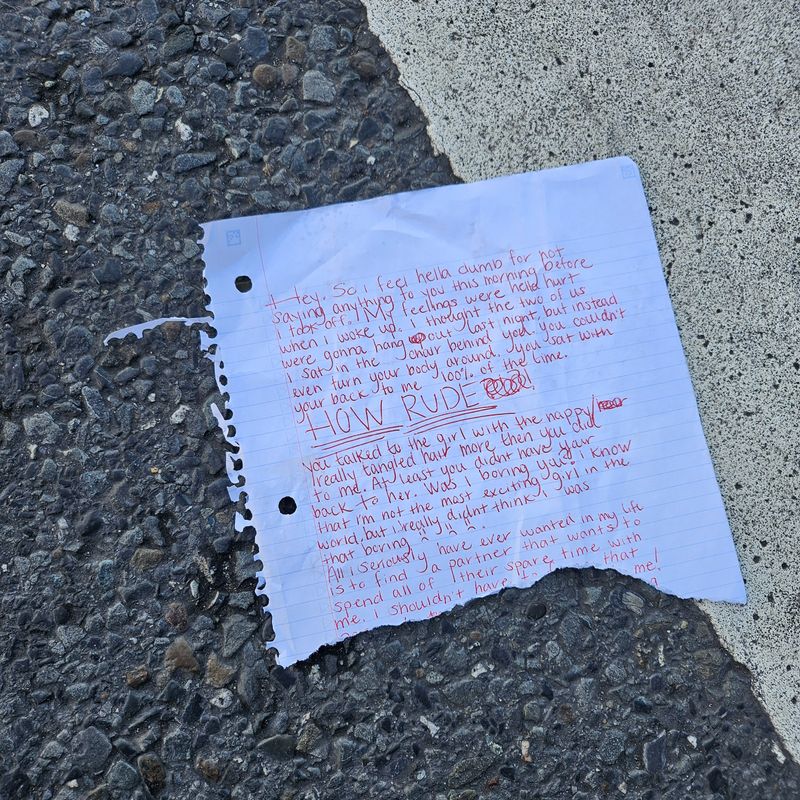 Hey. So i feel hella dumb for not
saying anything to you this morning before
i took off. My feelings were hella hurt
when i woke up. i thought the two of us
were gonna hang out last night but instead
i sat in the behind you. you couldn't
even turn your body around. you sat with
your back to me 100% of the time.
HOW RUDE !
you talked to the girl with the nappy/
really tangled hair more then you did
to me. At least you didnt have your
back to her. Was i boring you? i know
that i'm not the most exciting girl in the
world, but i really didnt think i was
that boring ^ ^ ^.
All i seriously have ever wanted in my life
is to find a partner that wants to
spend all of their spare time with
me. i shouldn't have that
me!